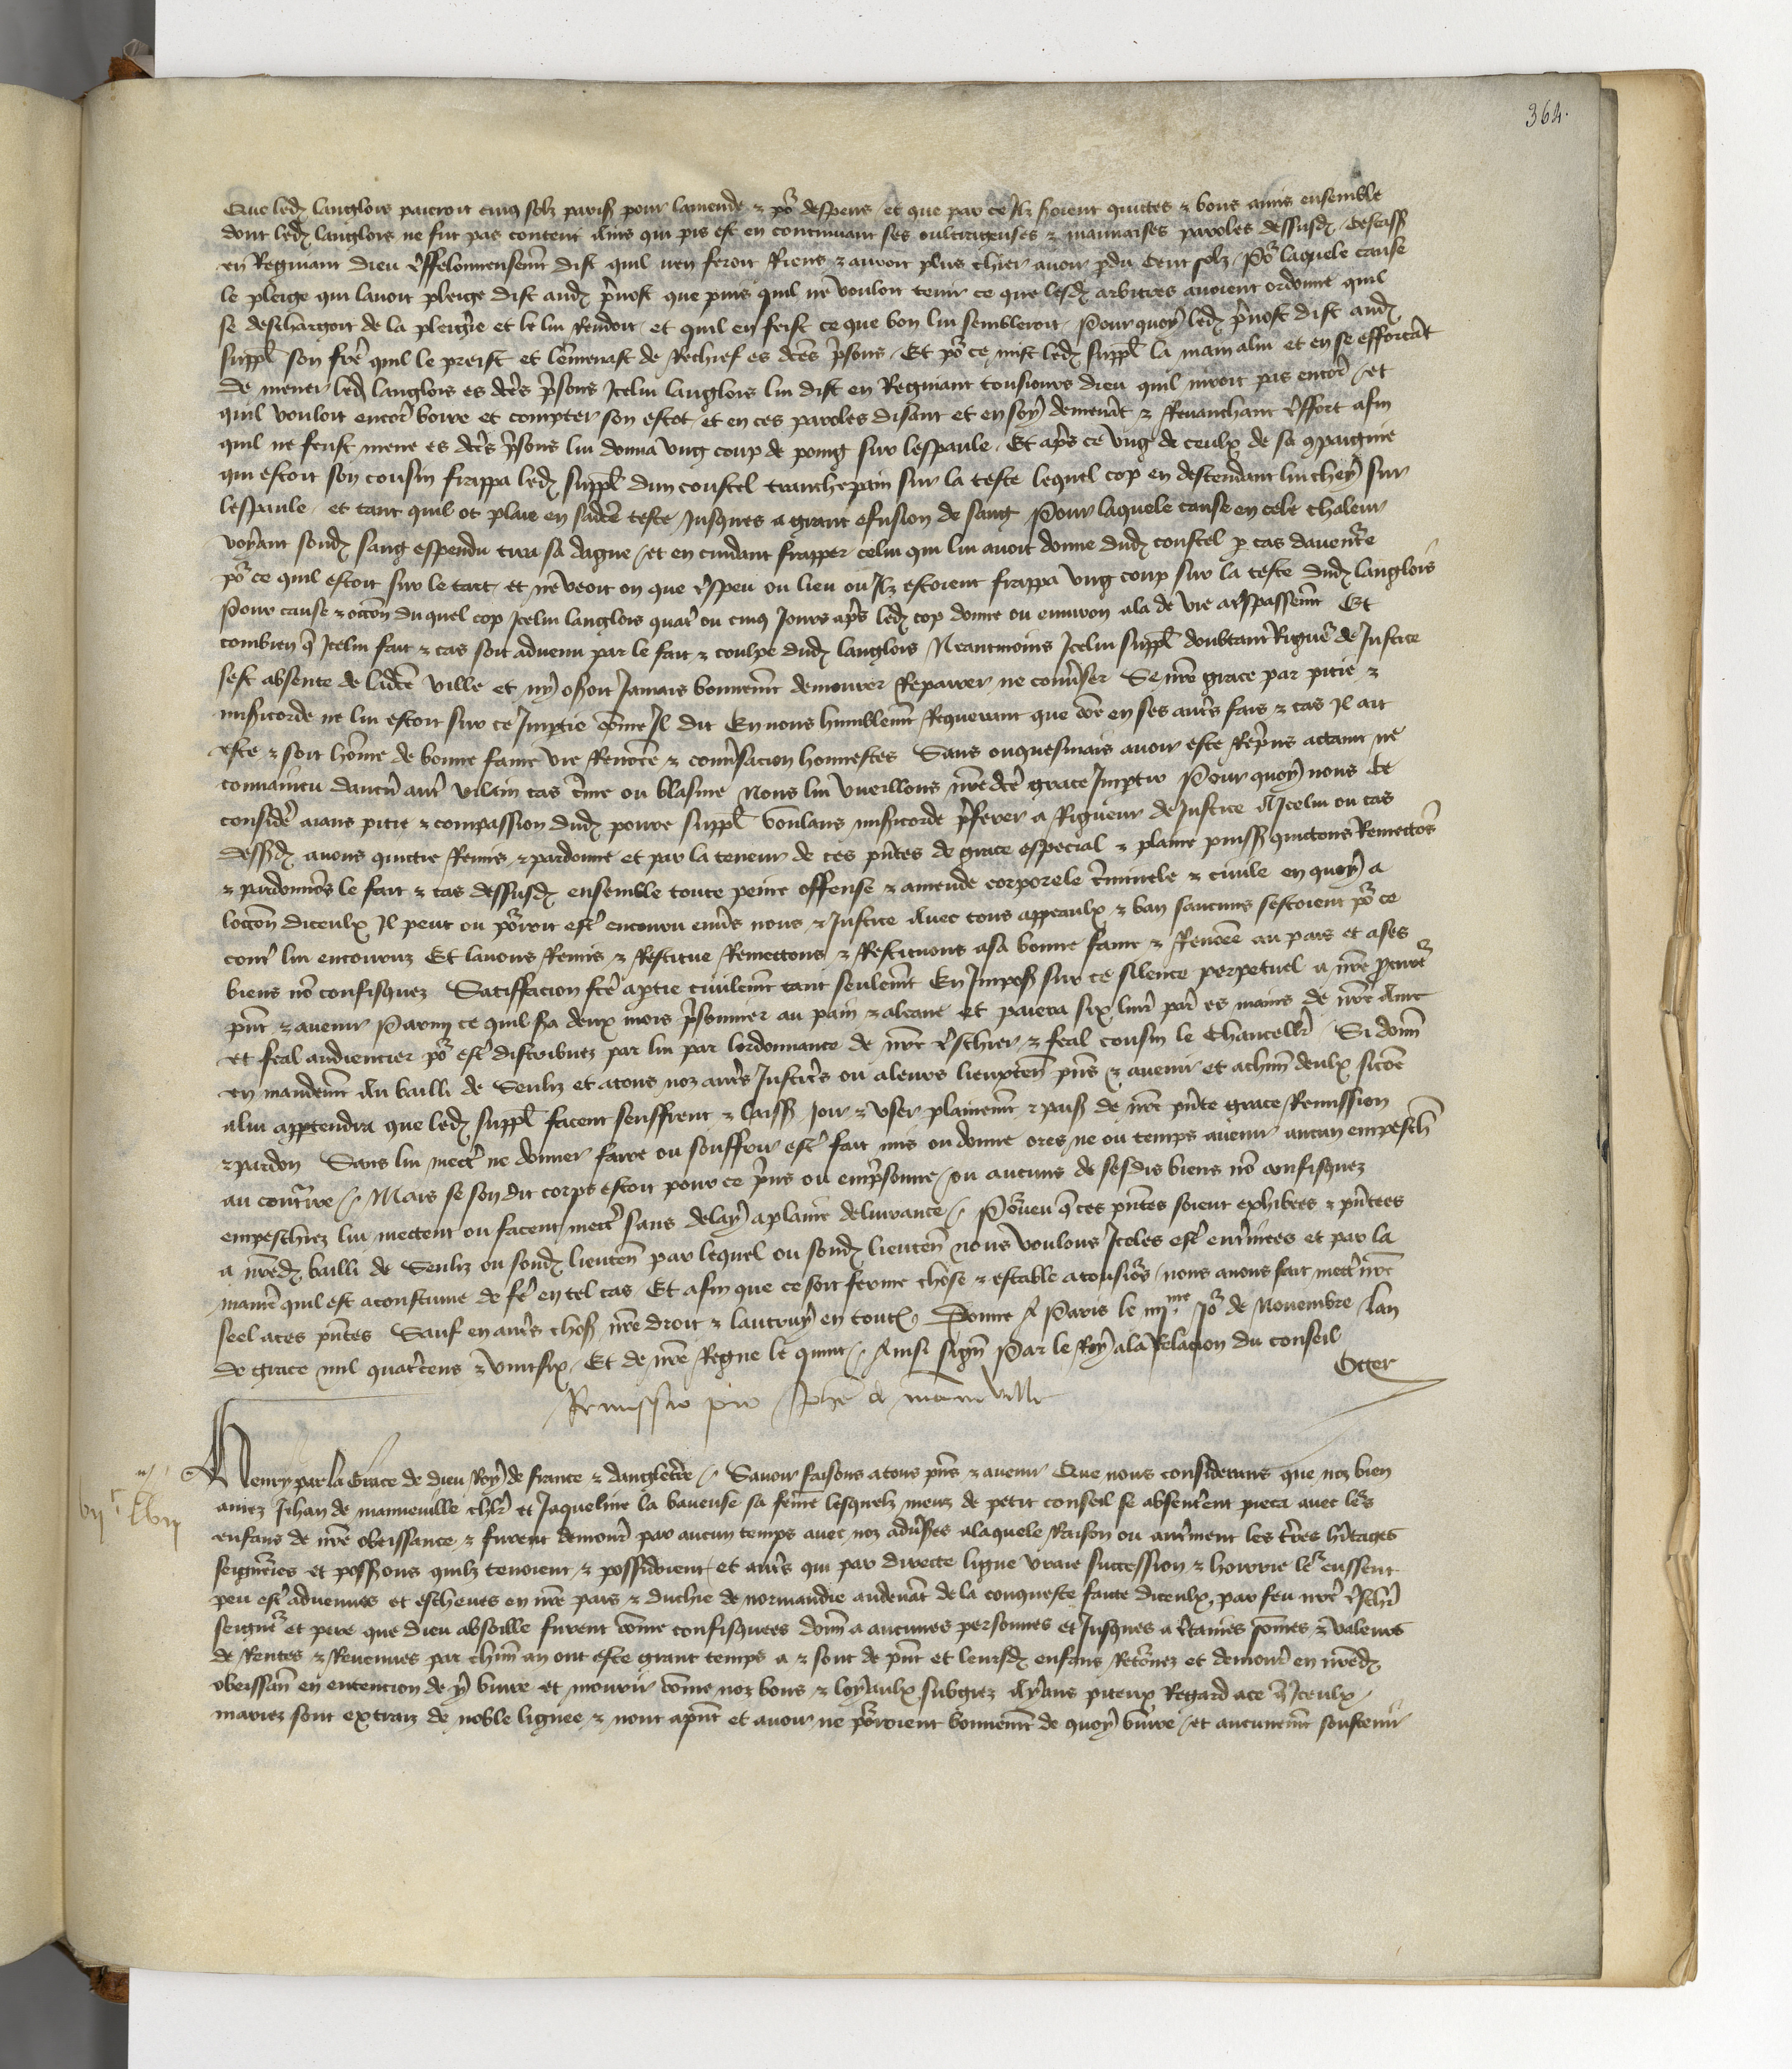 364.
Que led langlois paieroit cinq solz paris pour lamende & po despens et que par ce Ilz soient quittes & bons amis ensemble
dont led langlois ne fut pas content Ains qui pis est en continuant ses oultrageuses & mauuaises paroles dessusd
en Regniant dieu dist quil nen feroit Riens & auroit plus chier auoir pdu cent solz Po laquele cause
le pleige qui lauoit pleige dist aud puost que puis quil ne vouloit tenir ce que lesd arbitres auoient ordonne quil
se deschargoit de la pleigie et le lui Rendoit et quil en feist ce que bon lui sembleroit Pour quoy led puost dist aud
suppl son fre quil le preist et lemenast de Rechief es dces psons Et po ce mist led suppl la main alui et en se efforcat
de mener led langlois es dces psons Icelui langlois lui dist en Regniant tousiours dieu quil niroit pas encor et
quil vouloit encor boire et compter son escot et en ces paroles disant et en soy demenat & Reuanchant fort afin
quil ne feust mene es dces psons lui donna vng coup de poing sur lespaule Et aps ce vng de ceulx de sa gpaignie
qui estoit son cousin frappa led suppl dun coustel trenchepain sur la teste lequel cop en descendant lui chey sur
lespaule et tant quil ot plaie en sadce teste Jusques a grant efusion de sang Pour laquele cause en cele chaleur
voyant sond sang espendu tira sa dague et en cuidant frapper celui qui lui auoit donne dud coustel p cas dauentre
po ce quil estoit sur le tart et ne veoit on que peu ou lieu ou Ilz estoient frappa vng coup sur la teste dud langlois
Pour cause & occon du quel cop Icelui langlois quat ou cinq Jours aps led cop donne ou enuiron ala de vie a tspassemt Et
combien q Icelui fait & cas soit aduenu par le fait & coulpe dud langlois Neantmoins Icelui suppl doubtant Rigue de Justice
sest absente de ladce ville et ny oseroit Jamais bonnemt demourer Reparer ne conuser Se nre grace par pitie &
misicorde ne lui estoit sur ce Imptie come Il dit En nous humblemt Requerant que come en ses auts fais & cas Il ait
este & soit home de bonne fame vie Renomee & conusacion honnestes Sans onquesmais auoir este Repris actaint ne
conuaincu daucun aut vilain cas cime ou blasme Nous lui vueillons nre dce grace Imptir Pour quoy nous ce
conside aians pitie & compassion dud poure suppl voulans misicorde pferer a Rigueur de Justice A Icelui ou cas
dessd auons quictie Remis & pardonne et par la teneur de ces pntes de grace especial & plaine puiss quictons Remectos
& pardonnos le fait & cas dessusd ensemble toute peine offense & amende corporele ciminele & ciuile en quoy a
loccon diceulx Il peut ou porroit est encouru enus nous & Justice Auec tous appeaulx & ban saucuns sestoient po ce
cont lui encouruz Et lauons Remis & Restitue Remettons & Restituons asa bonne fame & Renomee au pais et ases
biens no confisquez Satiffacion fce aptie ciuilemt tant seulemt En Imposs sur ce silence perpetuel a nre pcure
pnt & auenir Parmy ce quil sa deux mois psonnier au pain & aleaue et paiera six liur par es mains de nre Ame
et feal audiencier po est distribuez par lui par lordonnance de nre tschier & feal cousin le Chancellr Si donn
en mandemt Au bailli de Senliz et atous noz auts Justics ou aleurs lieuxten pns & auenir et achun deulx sicoe
alui apptendra que led suppl facent seuffrent & laiss Joir & vser plainemt & pais de nre pnte grace Remission
& pardon Sans lui mett ne donner faire ou souffrir est fait mis ou donne ores ne ou temps auenir aucun empesch
au contrre Mais se son dit corps estoit pour ce pris ou empsonne ou aucuns de sesdis biens no confisquez
empeschiez lui mettent ou facent mett sans delay aplaine deliurance Poueu q ces pntes soient exhibees & pntees
a nred bailli de Senliz ou sond lieuten par lequel ou sond lieuten nous voulons Iceles est entinees et par la
maniere quil est acoustume de fe en tel cas Et afin que ce soit ferme chose & estable atousios nous auons fait mett nre
seel aces pntes Sauf en auts chos nre droit & lautruy en toutes Donne A Paris le iiiime Jo de Nouembre Lan
de grace mil quatcens & vintsix Et de nre Regne le quint Ainsi sign Par le Roy ala Relacion du conseil
Oger
Remissio pro Johe de manneville
Henry par la Grace de dieu Roy de france & dangleterre Sauoir faisons atous pns & auenir Que nous considerans que noz bien
amez Jehan de manneuille chlr et Jaqueline la baueuse sa feme lesquelz meuz de petit conseil se absentrent pieca auec les
enfans de nre obeissance & furent demour par aucun temps auec noz aduses alaquele Raison ou autment les tres hitages
seignries et possions quilz tenoient & possidoient et auts qui par directe ligne vraie succession & hoirrie le eussent
peu est aduenues et escheues en nre pais & duchie de normandie audeuat de la conqueste faite diceulx par feu nre tschr
seigne et pere que dieu absoille furent come confisquees donn a aucunes personnes et Jusques a ctaines somes & valeurs
de Rentes & Reuenues par chun an ont este grant temps a & sont de pnt et leursd enfans Retornez et demour en nred
obeissan en entencion de y viure et mourir come noz bons & loyaulx subgiez Ayans piteux Regard ace q Iceulx
mariez sont extraiz de noble lignee & nont apnt et auoir ne porroient bonnemt de quoy viure et aucunemt soustenir